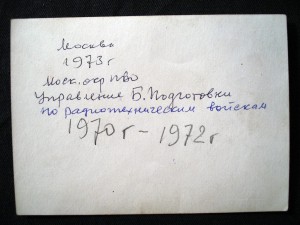 Москва
1973г
Моск. окр ПВО
Управление Б. Подготовки
по радиотехническим войскам
1970г – 1972г